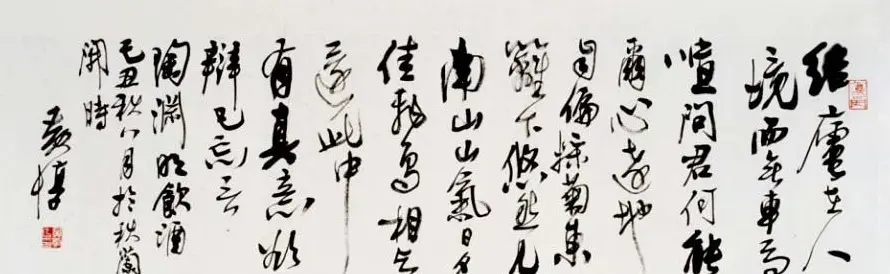 結廬在人
境而无車馬
喧問君何能
爾心遠地
自偏採菊東
籬下悠然見
南山山氣日夕
佳飛鳥相与
還此中
有真意欲
辯已忘言
陶淵明飲酒
己丑秋八月於秋蘭
開時